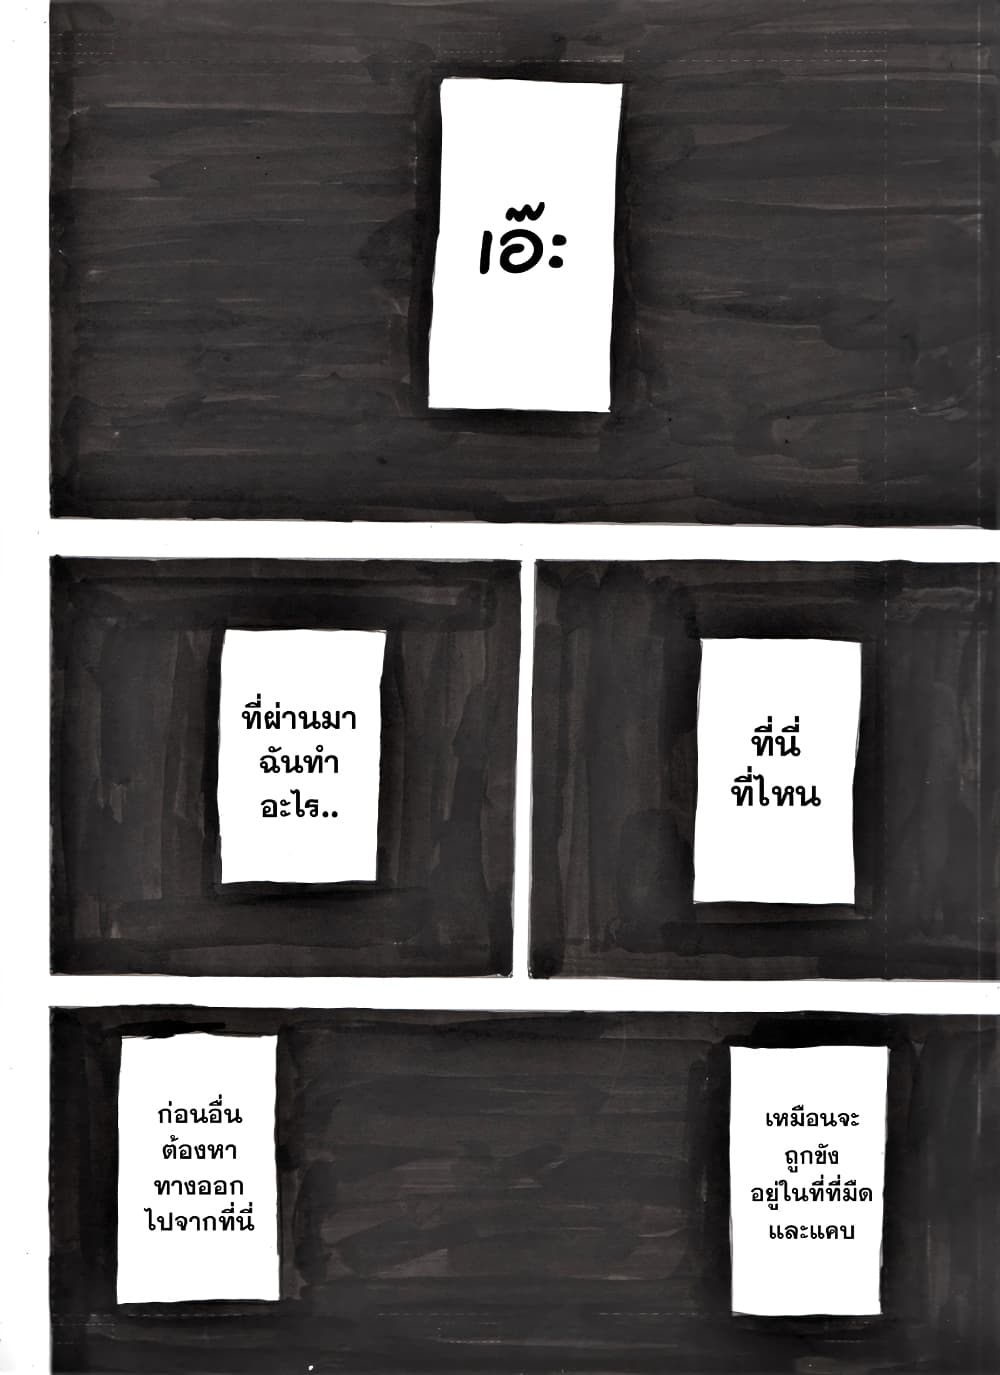 เอ๊ะ
ที่นี่
ที่ไหน
ที่ผ่านมา
ฉันทำ
อะไร..
เหมือนจะ
ถูกขัง
อยู่ในที่ที่มืด
และแคบ
ก่อนอื่น
ต้องหา
ทางออก
ไปจากที่นี่